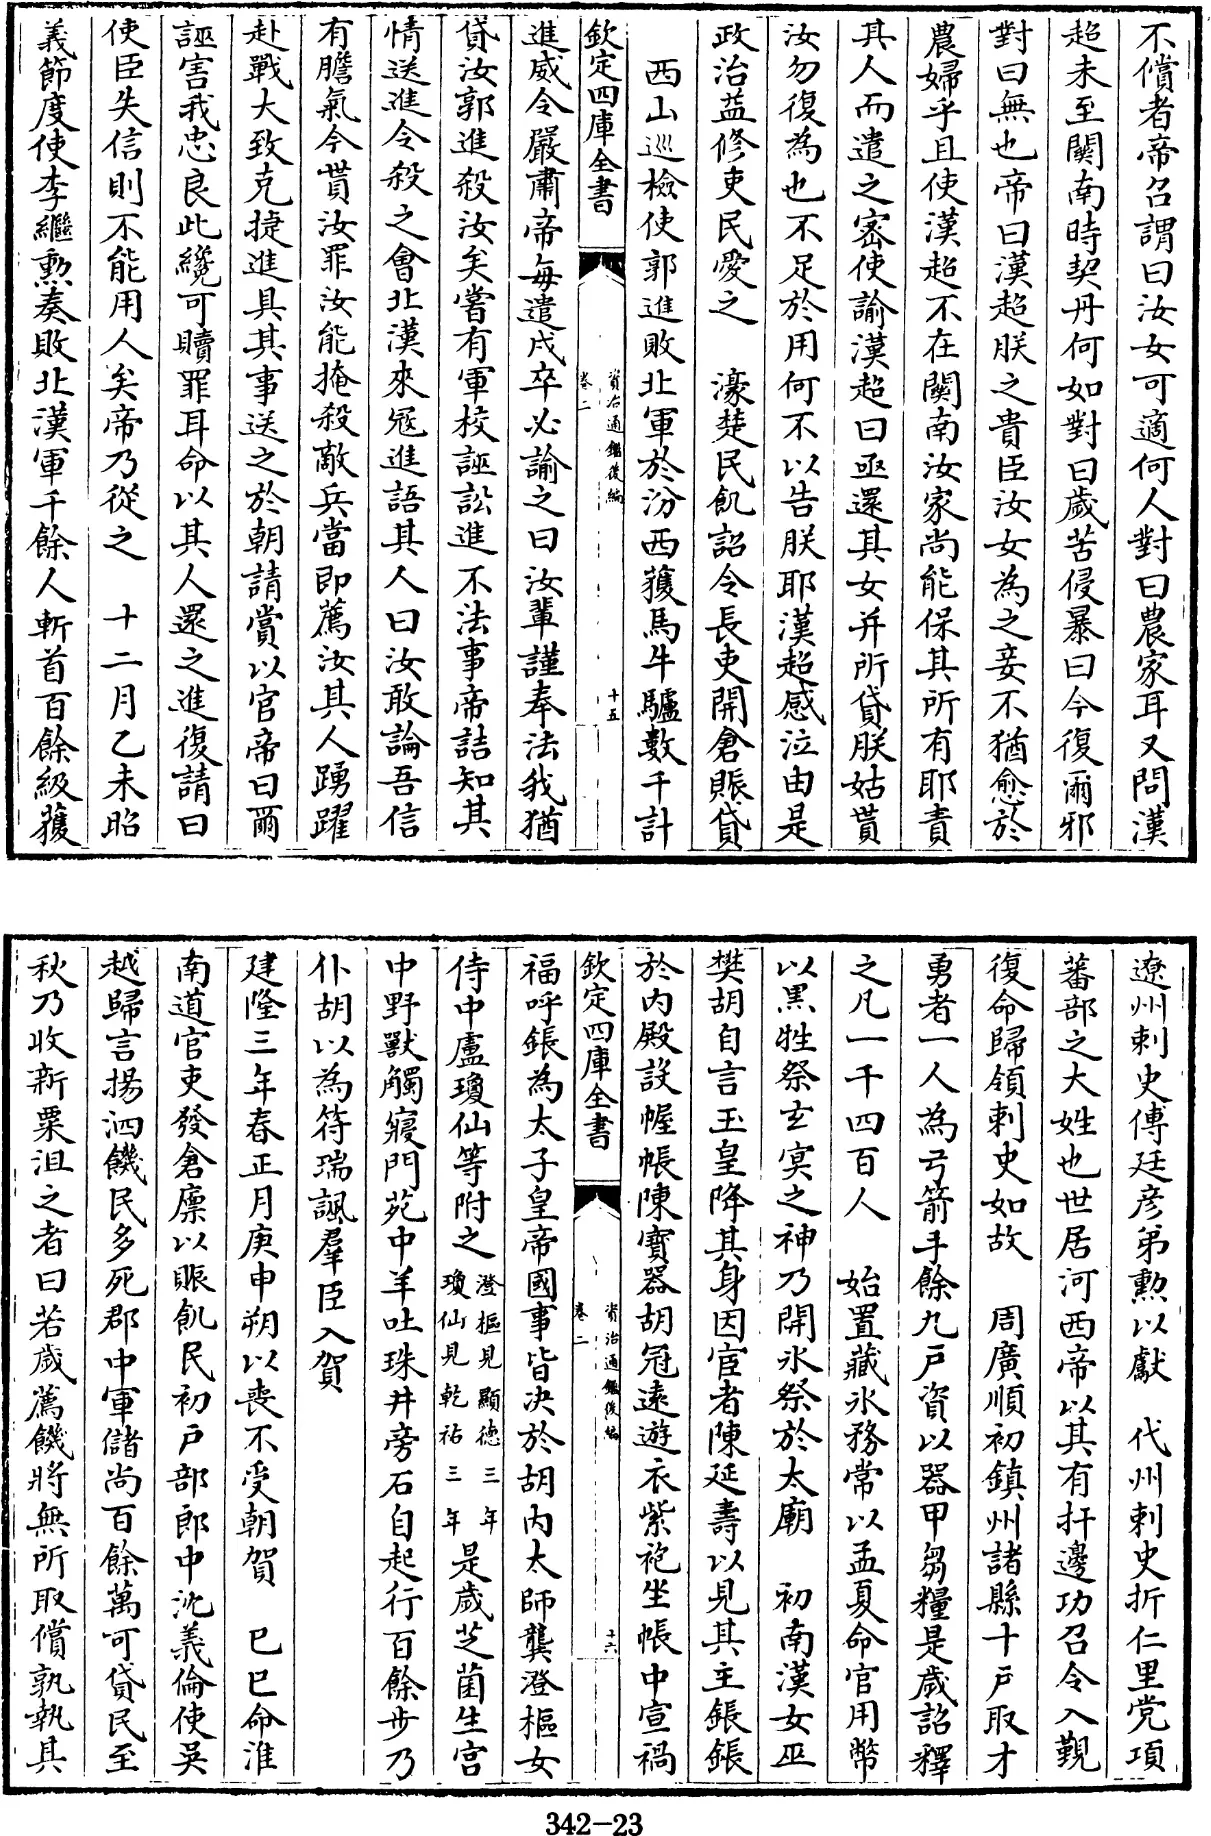 不償者帝召謂曰汝女可適何人對曰農家耳又問漢
超未至關南時契丹何如對曰歲苦侵暴曰今復爾邪
對曰無也帝曰漢超朕之貴臣汝女為之妾不猶愈於
農婦乎且使漢超不在關南汝家尚能保其所有耶責
其人而遣之密使諭漢超曰亟還其女并所貸朕姑貰
汝勿復為也不足於用何不以告朕耶漢超感泣由是
政治益修吏民愛之　濠楚民飢詔令長吏開倉賑貸
西山巡檢使郭進敗北軍於汾西獲馬牛驢數千計
欽定四庫全書　資治通鑑後編卷二　十五
進威令嚴肅帝每遣戍卒必諭之曰汝輩謹奉法我猶
貸汝郭進殺汝矣嘗有軍校誣訟進不法事帝詰知其
情送進令殺之會北漢來冦進語其人曰汝敢論吾信
有膽氣今貰汝罪汝能掩殺敵兵當即薦汝其人踴躍
赴戰大致克捷進具其事送之於朝請賞以官帝曰爾
誣害我忠良此纔可贖罪耳命以其人還之進復請曰
使臣失信則不能用人矣帝乃從之　十二月乙未昭
義節度使李繼勲奏敗北漢軍千餘人斬首百餘級獲
遼州刺史傅廷彦弟勲以獻　代州刺史折仁里党項
蕃部之大姓也世居河西帝以其有扞邊功召令入覲
復命歸領刺史如故　周廣順初鎮州諸縣十戸取才
勇者一人為弓箭手餘九戸資以器甲芻糧是歲詔釋
之凡一千四百人　始置藏氷務常以孟夏命官用幣
以黒牲祭玄冥之神乃開氷祭於太廟　初南漢女巫
樊胡自言玉皇降其身因宦者陳延壽以見其主鋹鋹
於内殿設幄帳陳寶器胡冠遠遊衣紫袍坐帳中宣禍
欽定四庫全書　資治通鑑後編卷二　十六
福呼鋹為太子皇帝國事皆決於胡内太師龔澄樞女
侍中盧瓊仙等附之澄樞見顯德三年瓊仙見乾祐三年是歲芝菌生宮
中野獸觸寢門苑中羊吐珠井旁石自起行百餘步乃
仆胡以為符瑞諷羣臣入賀
建隆三年春正月庚申朔以喪不受朝賀　己巳命淮
南道官吏發倉廩以賑飢民初戸部郎中沈義倫使吳
越歸言揚泗饑民多死郡中軍儲尚百餘萬可貸民至
秋乃收新粟沮之者曰若歲薦饑將無所取償孰執其
342-23